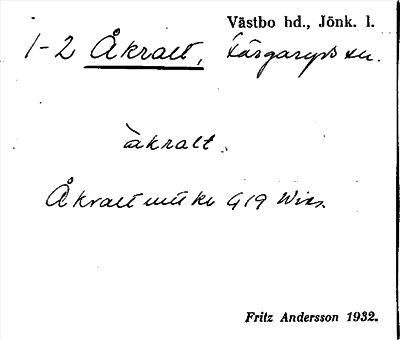 Västbo hd., Jönk. l.
1-2 Åkralt, Färgaryds sn.
àkralt.
Åkralt G19
Fritz Andersson 1932.